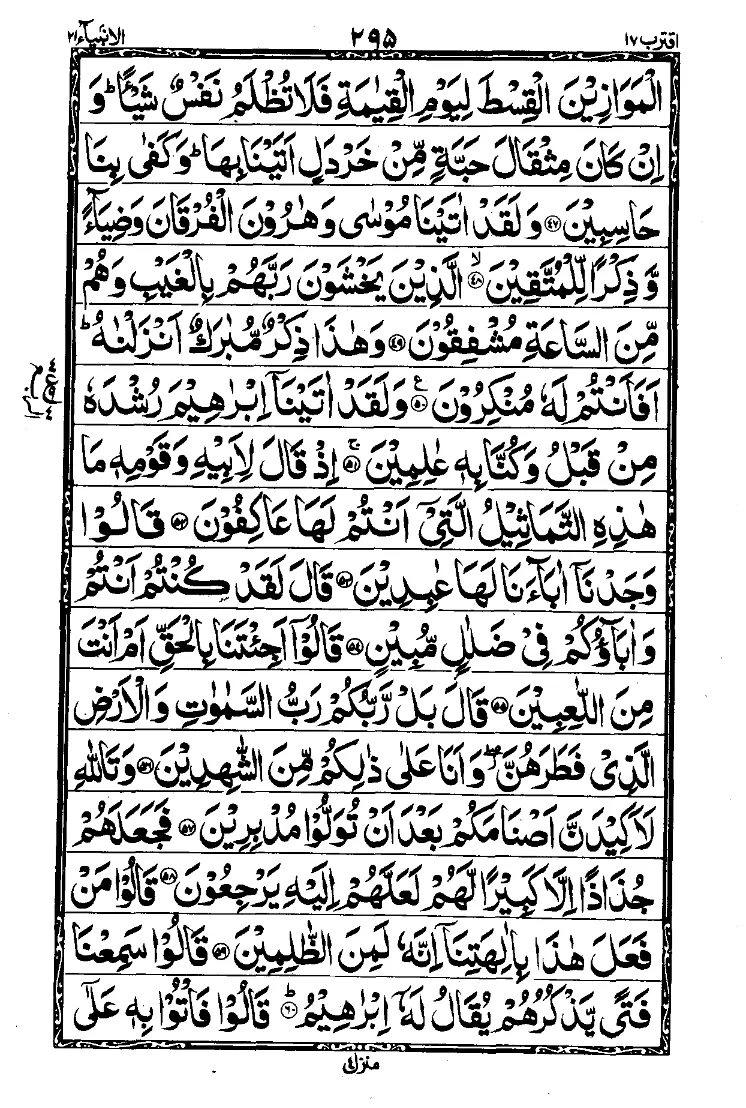 اقترب ١٧ ٢٩٥ الانبیآء ٢١
الْمَوَازِیْنَ الْقِسْطَ لِیَوْمِ الْقِیٰمَةِ فَلَا تُظْلَمُ نَفْسٌ شَیْـًٔا ؕ وَ
اِنْ كَانَ مِثْقَالَ حَبَّةٍ مِّنْ خَرْدَلٍ اَتَیْنَا بِهَا ؕ وَ كَفٰی بِنَا
حَاسِبِیْنَ ﴿٤٧﴾ وَ لَقَدْ اٰتَیْنَا مُوْسٰی وَ هٰرُوْنَ الْفُرْقَانَ وَ ضِیَآءً
وَّ ذِكْرًا لِّلْمُتَّقِیْنَ ﴿٤٨﴾ ۙ الَّذِیْنَ یَخْشَوْنَ رَبَّهُمْ بِالْغَیْبِ وَ هُمْ
مِّنَ السَّاعَةِ مُشْفِقُوْنَ ﴿٤٩﴾ وَ هٰذَا ذِكْرٌ مُّبٰرَكٌ اَنْزَلْنٰهُ ؕ
اَفَاَنْتُمْ لَهٗ مُنْكِرُوْنَ ﴿٥٠﴾ ع وَ لَقَدْ اٰتَیْنَاۤ اِبْرٰهِیْمَ رُشْدَهٗ
مِنْ قَبْلُ وَ كُنَّا بِهٖ عٰلِمِیْنَ ﴿٥١﴾ ۚ اِذْ قَالَ لِاَبِیْهِ وَ قَوْمِهٖ مَا
هٰذِهِ التَّمَاثِیْلُ الَّتِیْۤ اَنْتُمْ لَهَا عَاكِفُوْنَ ﴿٥٢﴾ قَالُوْا
وَجَدْنَاۤ اٰبَآءَنَا لَهَا عٰبِدِیْنَ ﴿٥٣﴾ قَالَ لَقَدْ كُنْتُمْ اَنْتُمْ
وَ اٰبَآؤُكُمْ فِیْ ضَلٰلٍ مُّبِیْنٍ ﴿٥٤﴾ قَالُوْۤا اَجِئْتَنَا بِالْحَقِّ اَمْ اَنْتَ
مِنَ اللّٰعِبِیْنَ ﴿٥٥﴾ قَالَ بَلْ رَّبُّكُمْ رَبُّ السَّمٰوٰتِ وَ الْاَرْضِ
الَّذِیْ فَطَرَهُنَّ ۖؗ وَ اَنَا عَلٰی ذٰلِكُمْ مِّنَ الشّٰهِدِیْنَ ﴿٥٦﴾ وَ تَاللّٰهِ
لَاَكِیْدَنَّ اَصْنَامَكُمْ بَعْدَ اَنْ تُوَلُّوْا مُدْبِرِیْنَ ﴿٥٧﴾ فَجَعَلَهُمْ
جُذَاذًا اِلَّا كَبِیْرًا لَّهُمْ لَعَلَّهُمْ اِلَیْهِ یَرْجِعُوْنَ ﴿٥٨﴾ قَالُوْا مَنْ
فَعَلَ هٰذَا بِاٰلِهَتِنَاۤ اِنَّهٗ لَمِنَ الظّٰلِمِیْنَ ﴿٥٩﴾ قَالُوْا سَمِعْنَا
فَتًی یَّذْكُرُهُمْ یُقَالُ لَهٗۤ اِبْرٰهِیْمُ ﴿٦٠﴾ ؕ قَالُوْا فَاْتُوْا بِهٖ عَلٰۤی
منزل ٤